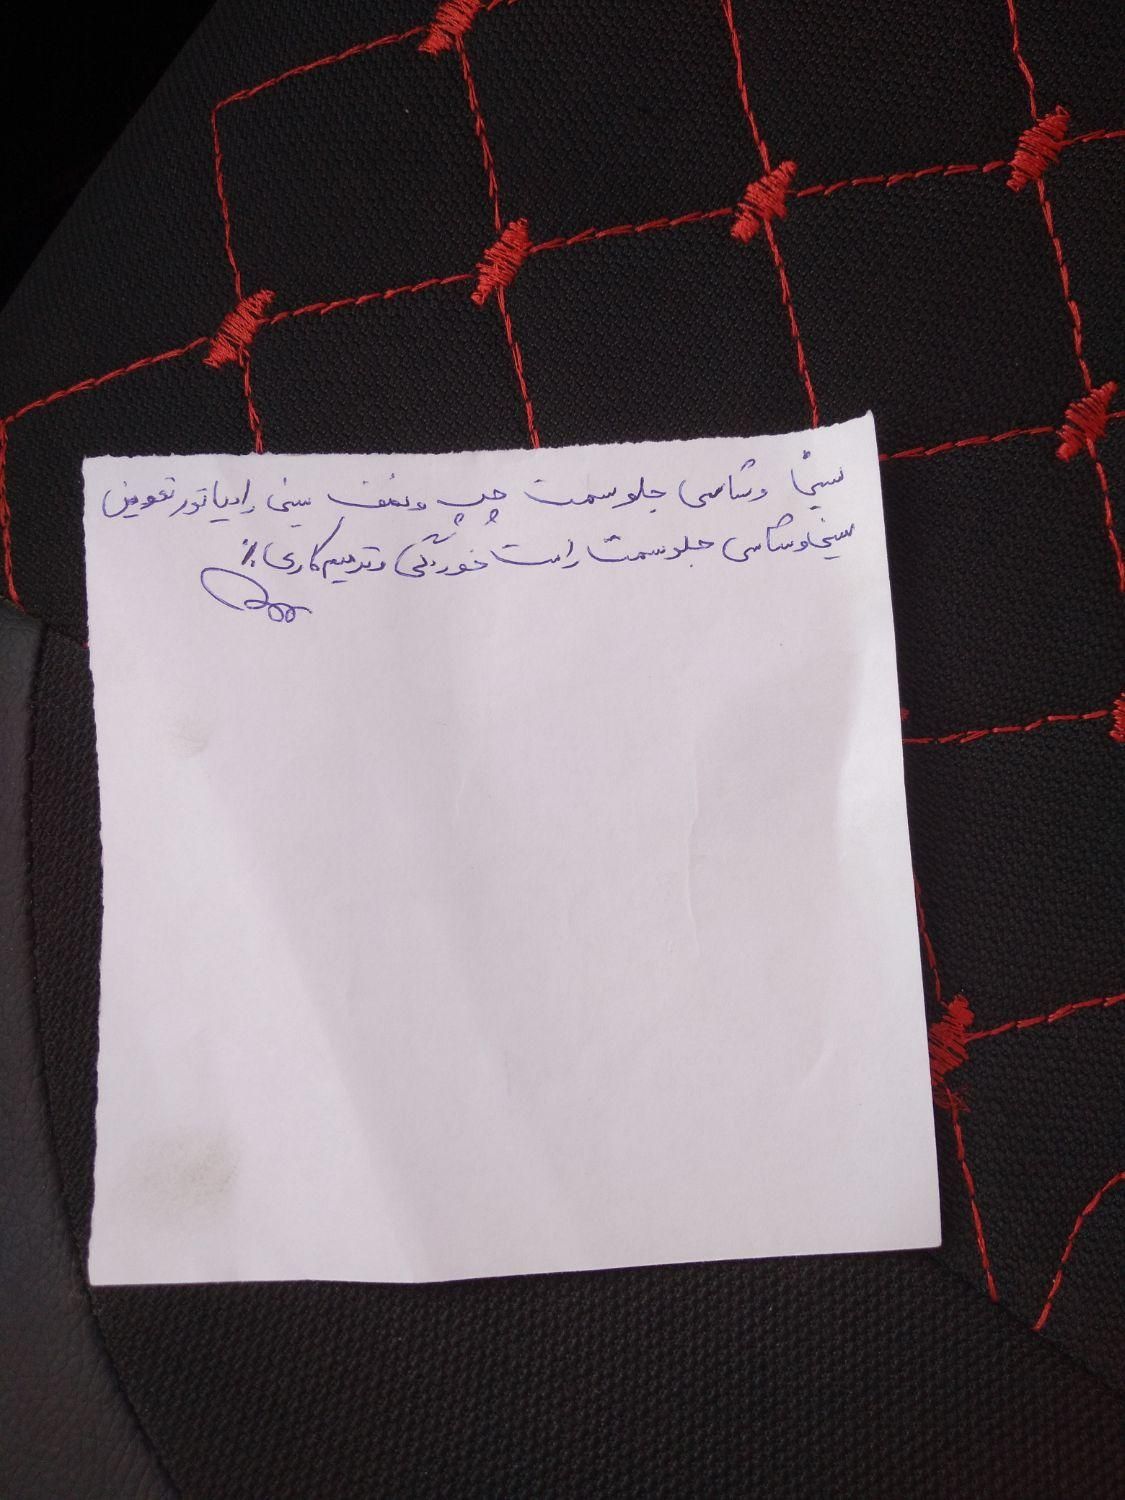 سینی و شاسی جلو سمت چپ و نصف سینی رادیاتور تعویض
سینی و شاسی جلو سمت راست خوردگی و ترمیم کاری٪